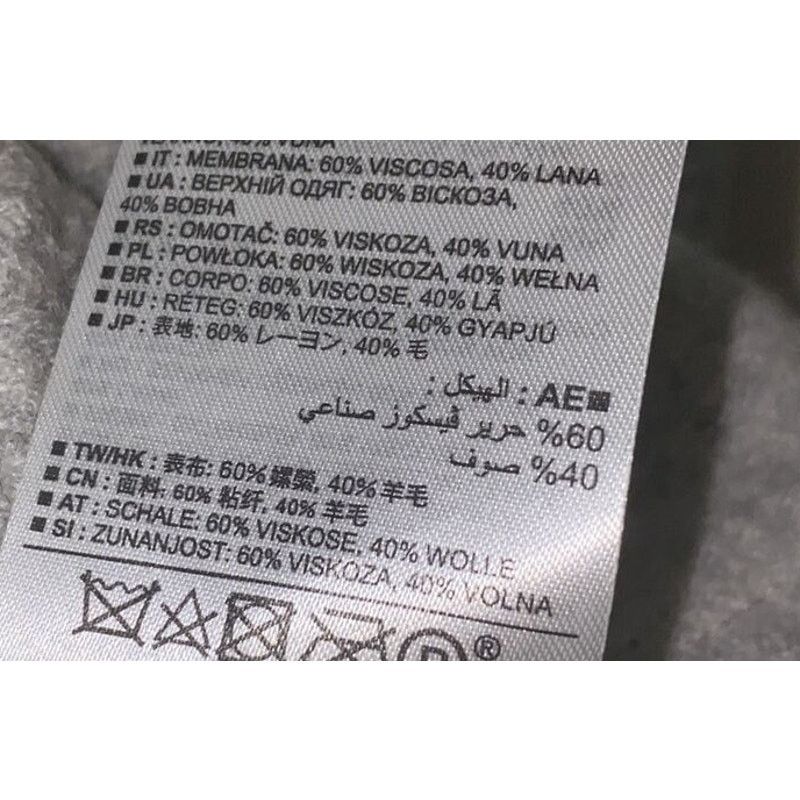 40% VUNA
■ IT : MEMBRANA: 60% VISCOSA, 40% LANA
■ UA : ВЕРХНІЙ ОДЯГ: 60% ВІСКОЗА,
40% ВОВНА
■ RS : OMOTAČ: 60% VISKOZA, 40% VUNA
■ PL : POWŁOKA: 60% WISKOZA, 40% WEŁNA
■ BR : CORPO: 60% VISCOSE, 40% LÃ
■ HU : RÉTEG: 60% VISZKÓZ, 40% GYAPJÚ
■ JP : 表地: 60% レーヨン, 40% 毛
■AE : الهيكل :
60% حرير ڤيسكوز صناعي
40% صوف
■ TW/HK : 表布: 60% 螺縈, 40% 羊毛
■ CN : 面料: 60% 粘纤, 40% 羊毛
■ AT : SCHALE: 60% VISKOSE, 40% WOLLE
■ SI : ZUNANJOST: 60% VISKOZA, 40% VOLNA
P ®